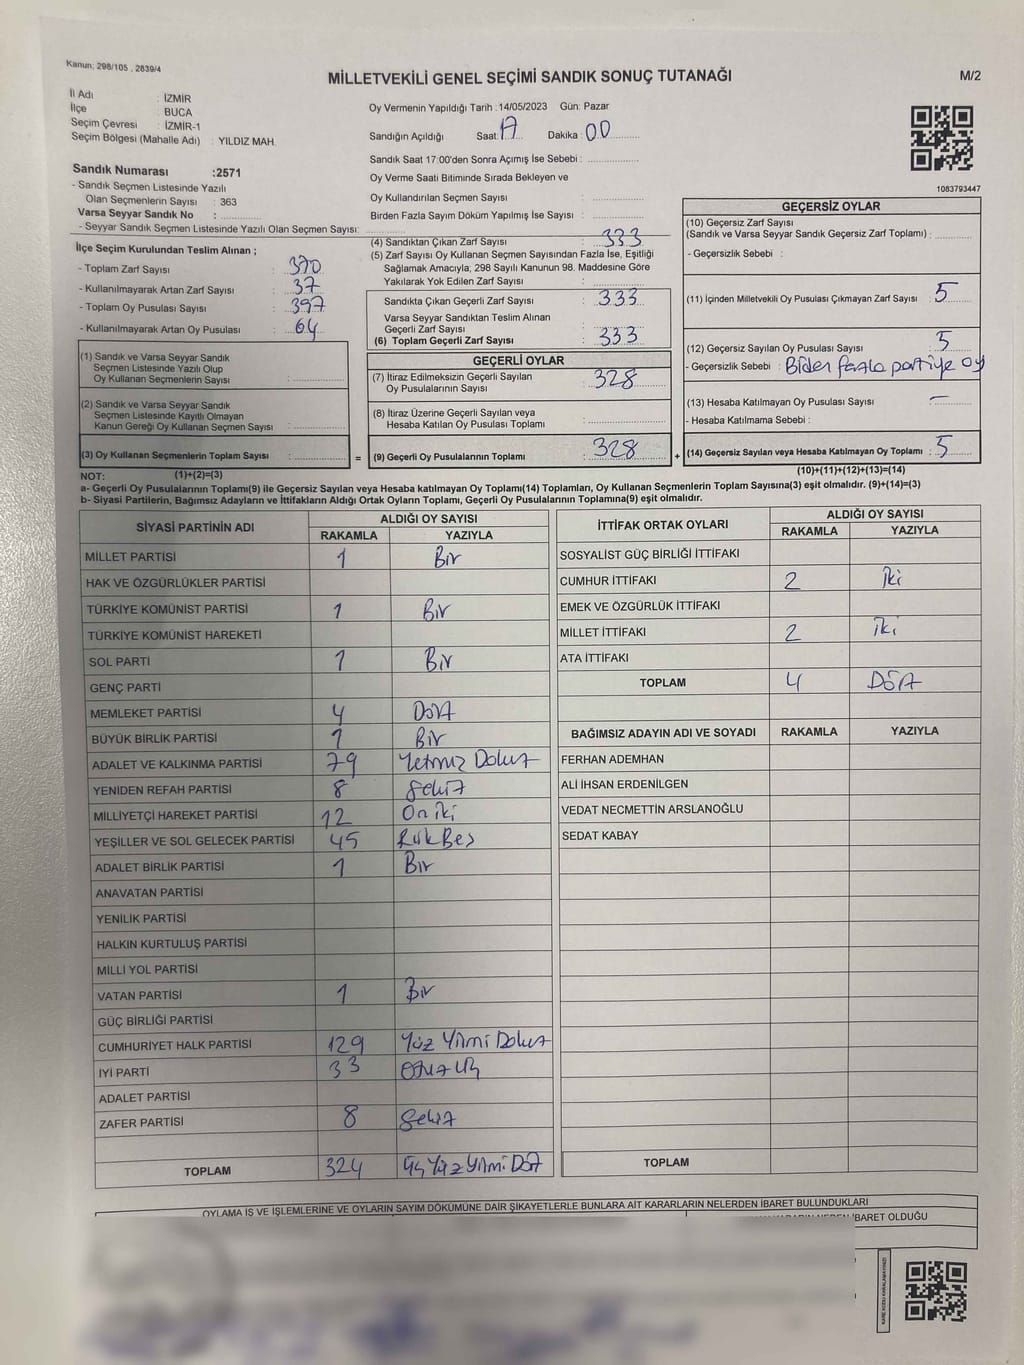 Kanun: 298/105 , 2839/4
MİLLETVEKİLİ GENEL SEÇİMİ SANDIK SONUÇ TUTANAĞI
M/2
İl Adı : İZMİR
İlçe : BUCA
Seçim Çevresi : İZMİR-1
Seçim Bölgesi (Mahalle Adı) : YILDIZ MAH.
Oy Vermenin Yapıldığı Tarih :14/05/2023 Gün: Pazar
Sandığın Açıldığı Saat: 17 Dakika : 00
Sandık Saat 17:00'den Sonra Açımış İse Sebebi :
Oy Verme Saati Bitiminde Sırada Bekleyen ve
Oy Kullandırılan Seçmen Sayısı :
Birden Fazla Sayım Döküm Yapılmış İse Sayısı :
1083793447
Sandık Numarası :2571
- Sandık Seçmen Listesinde Yazılı
Olan Seçmenlerin Sayısı : 363
Varsa Seyyar Sandık No :
- Seyyar Sandık Seçmen Listesinde Yazılı Olan Seçmen Sayısı:
İlçe Seçim Kurulundan Teslim Alınan ;
- Toplam Zarf Sayısı : 370
- Kullanılmayarak Artan Zarf Sayısı : 37
- Toplam Oy Pusulası Sayısı : 397
- Kullanılmayarak Artan Oy Pusulası : 64
(1) Sandık ve Varsa Seyyar Sandık
Seçmen Listesinde Yazılı Olup
Oy Kullanan Seçmenlerin Sayısı :
(2) Sandık ve Varsa Seyyar Sandık
Seçmen Listesinde Kayıtlı Olmayan
Kanun Gereği Oy Kullanan Seçmen Sayısı :
(3) Oy Kullanan Seçmenlerin Toplam Sayısı :
=
(4) Sandıktan Çıkan Zarf Sayısı : 333
(5) Zarf Sayısı Oy Kullanan Seçmen Sayısından Fazla İse, Eşitliği
Sağlamak Amacıyla; 298 Sayılı Kanunun 98. Maddesine Göre
Yakılarak Yok Edilen Zarf Sayısı :
Sandıkta Çıkan Geçerli Zarf Sayısı : 333
Varsa Seyyar Sandıktan Teslim Alınan
Geçerli Zarf Sayısı :
(6) Toplam Geçerli Zarf Sayısı : 333
GEÇERLİ OYLAR
(7) İtiraz Edilmeksizin Geçerli Sayılan
Oy Pusulalarının Sayısı : 328
(8) İtiraz Üzerine Geçerli Sayılan veya
Hesaba Katılan Oy Pusulası Toplamı :
(9) Geçerli Oy Pusulalarının Toplamı : 328
+
GEÇERSİZ OYLAR
(10) Geçersiz Zarf Sayısı
(Sandık ve Varsa Seyyar Sandık Geçersiz Zarf Toplamı) :
- Geçersizlik Sebebi :
(11) İçinden Milletvekili Oy Pusulası Çıkmayan Zarf Sayısı : 5
(12) Geçersiz Sayılan Oy Pusulası Sayısı : 5
- Geçersizlik Sebebi : Birden fazla partiye oy
(13) Hesaba Katılmayan Oy Pusulası Sayısı : –
- Hesaba Katılmama Sebebi :
(14) Geçersiz Sayılan veya Hesaba Katılmayan Oy Toplamı : 5
NOT: (1)+(2)=(3)
(10)+(11)+(12)+(13)=(14)
a- Geçerli Oy Pusulalarının Toplamı(9) ile Geçersiz Sayılan veya Hesaba katılmayan Oy Toplamı(14) Toplamları, Oy Kullanan Seçmenlerin Toplam Sayısına(3) eşit olmalıdır. (9)+(14)=(3)
b- Siyasi Partilerin, Bağımsız Adayların ve İttifakların Aldığı Ortak Oyların Toplamı, Geçerli Oy Pusulalarının Toplamına(9) eşit olmalıdır.
SİYASİ PARTİNİN ADI ALDIĞI OY SAYISI
RAKAMLA YAZIYLA
MİLLET PARTİSİ 1 Bir
HAK VE ÖZGÜRLÜKLER PARTİSİ
TÜRKİYE KOMÜNİST PARTİSİ 1 Bir
TÜRKİYE KOMÜNİST HAREKETİ
SOL PARTİ 1 Bir
GENÇ PARTİ
MEMLEKET PARTİSİ 4 Dört
BÜYÜK BİRLİK PARTİSİ 1 Bir
ADALET VE KALKINMA PARTİSİ 79 Yetmiş Dokuz
YENİDEN REFAH PARTİSİ 8 Sekiz
MİLLİYETÇİ HAREKET PARTİSİ 12 On iki
YEŞİLLER VE SOL GELECEK PARTİSİ 45 Kırk Beş
ADALET BİRLİK PARTİSİ 1 Bir
ANAVATAN PARTİSİ
YENİLİK PARTİSİ
HALKIN KURTULUŞ PARTİSİ
MİLLİ YOL PARTİSİ
VATAN PARTİSİ 1 Bir
GÜÇ BİRLİĞİ PARTİSİ
CUMHURİYET HALK PARTİSİ 129 Yüz Yirmi Dokuz
İYİ PARTİ 33 Otuz Üç
ADALET PARTİSİ
ZAFER PARTİSİ 8 Sekiz
TOPLAM 324 Üç Yüz Yirmi Dört
İTTİFAK ORTAK OYLARI ALDIĞI OY SAYISI
RAKAMLA YAZIYLA
SOSYALİST GÜÇ BİRLİĞİ İTTİFAKI
CUMHUR İTTİFAKI 2 İki
EMEK VE ÖZGÜRLÜK İTTİFAKI
MİLLET İTTİFAKI 2 İki
ATA İTTİFAKI
TOPLAM 4 Dört
BAĞIMSIZ ADAYIN ADI VE SOYADI RAKAMLA YAZIYLA
FERHAN ADEMHAN
ALİ İHSAN ERDENİLGEN
VEDAT NECMETTİN ARSLANOĞLU
SEDAT KABAY
TOPLAM
OYLAMA İŞ VE İŞLEMLERİNE VE OYLARIN SAYIM DÖKÜMÜNE DAİR ŞİKAYETLERLE BUNLARA AİT KARARLARIN NELERDEN İBARET BULUNDUKLARI
İBARET OLDUĞU